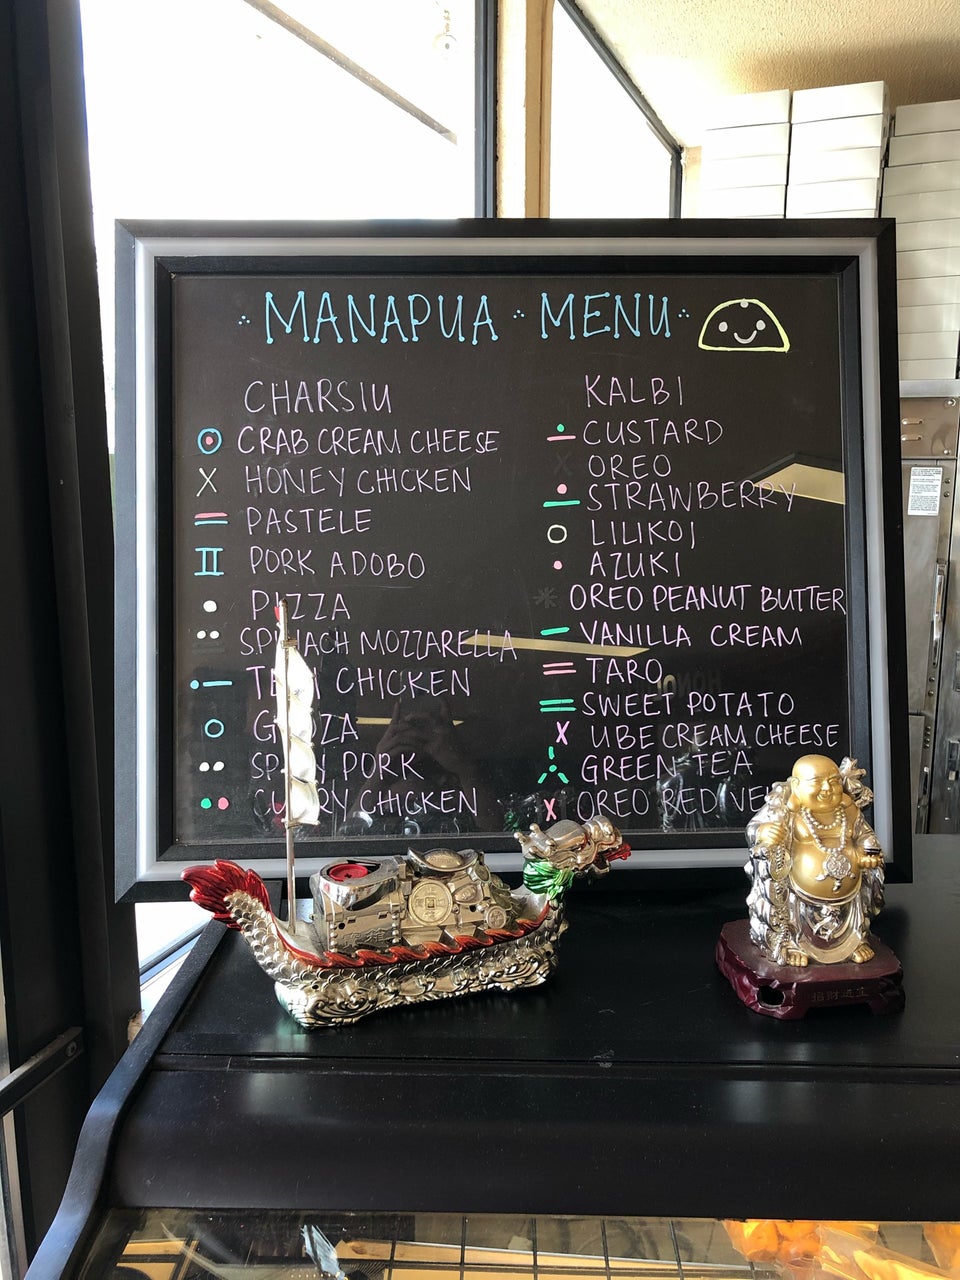 MANAPUA · MENU
CHARSIU
CRAB CREAM CHEESE
HONEY CHICKEN
PASTELE
PORK ADOBO
PIZZA
SPINACH MOZZARELLA
CHICKEN
GYOZA
PORK
CURRY CHICKEN
KALBI
CUSTARD
OREO
STRAWBERRY
LILIKOI
AZUKI
OREO PEANUT BUTTER
VANILLA CREAM
TARO
SWEET POTATO
UBE CREAM CHEESE
GREEN TEA
OREO RED
招財進宝